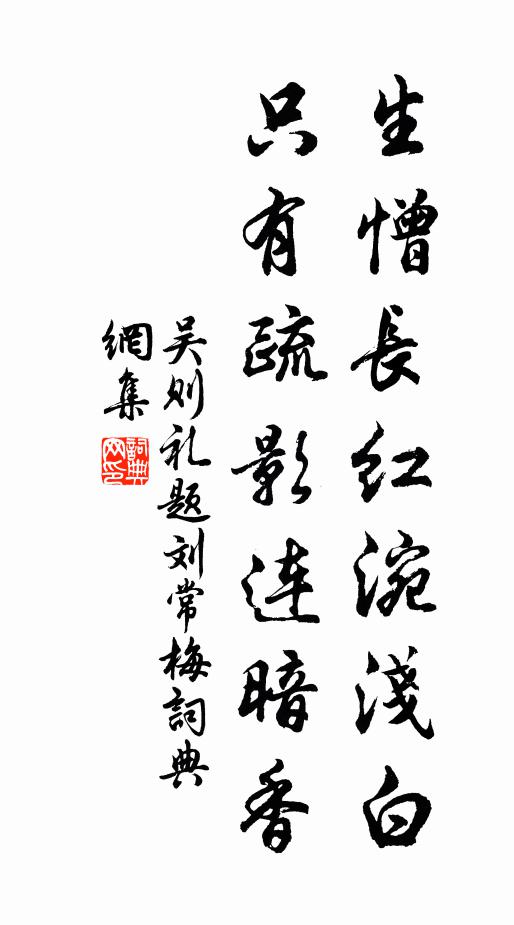 生憎長红涴淺白
只有疏影连暗香
吴则礼题刘常梅詞典
網集
詞典
网印